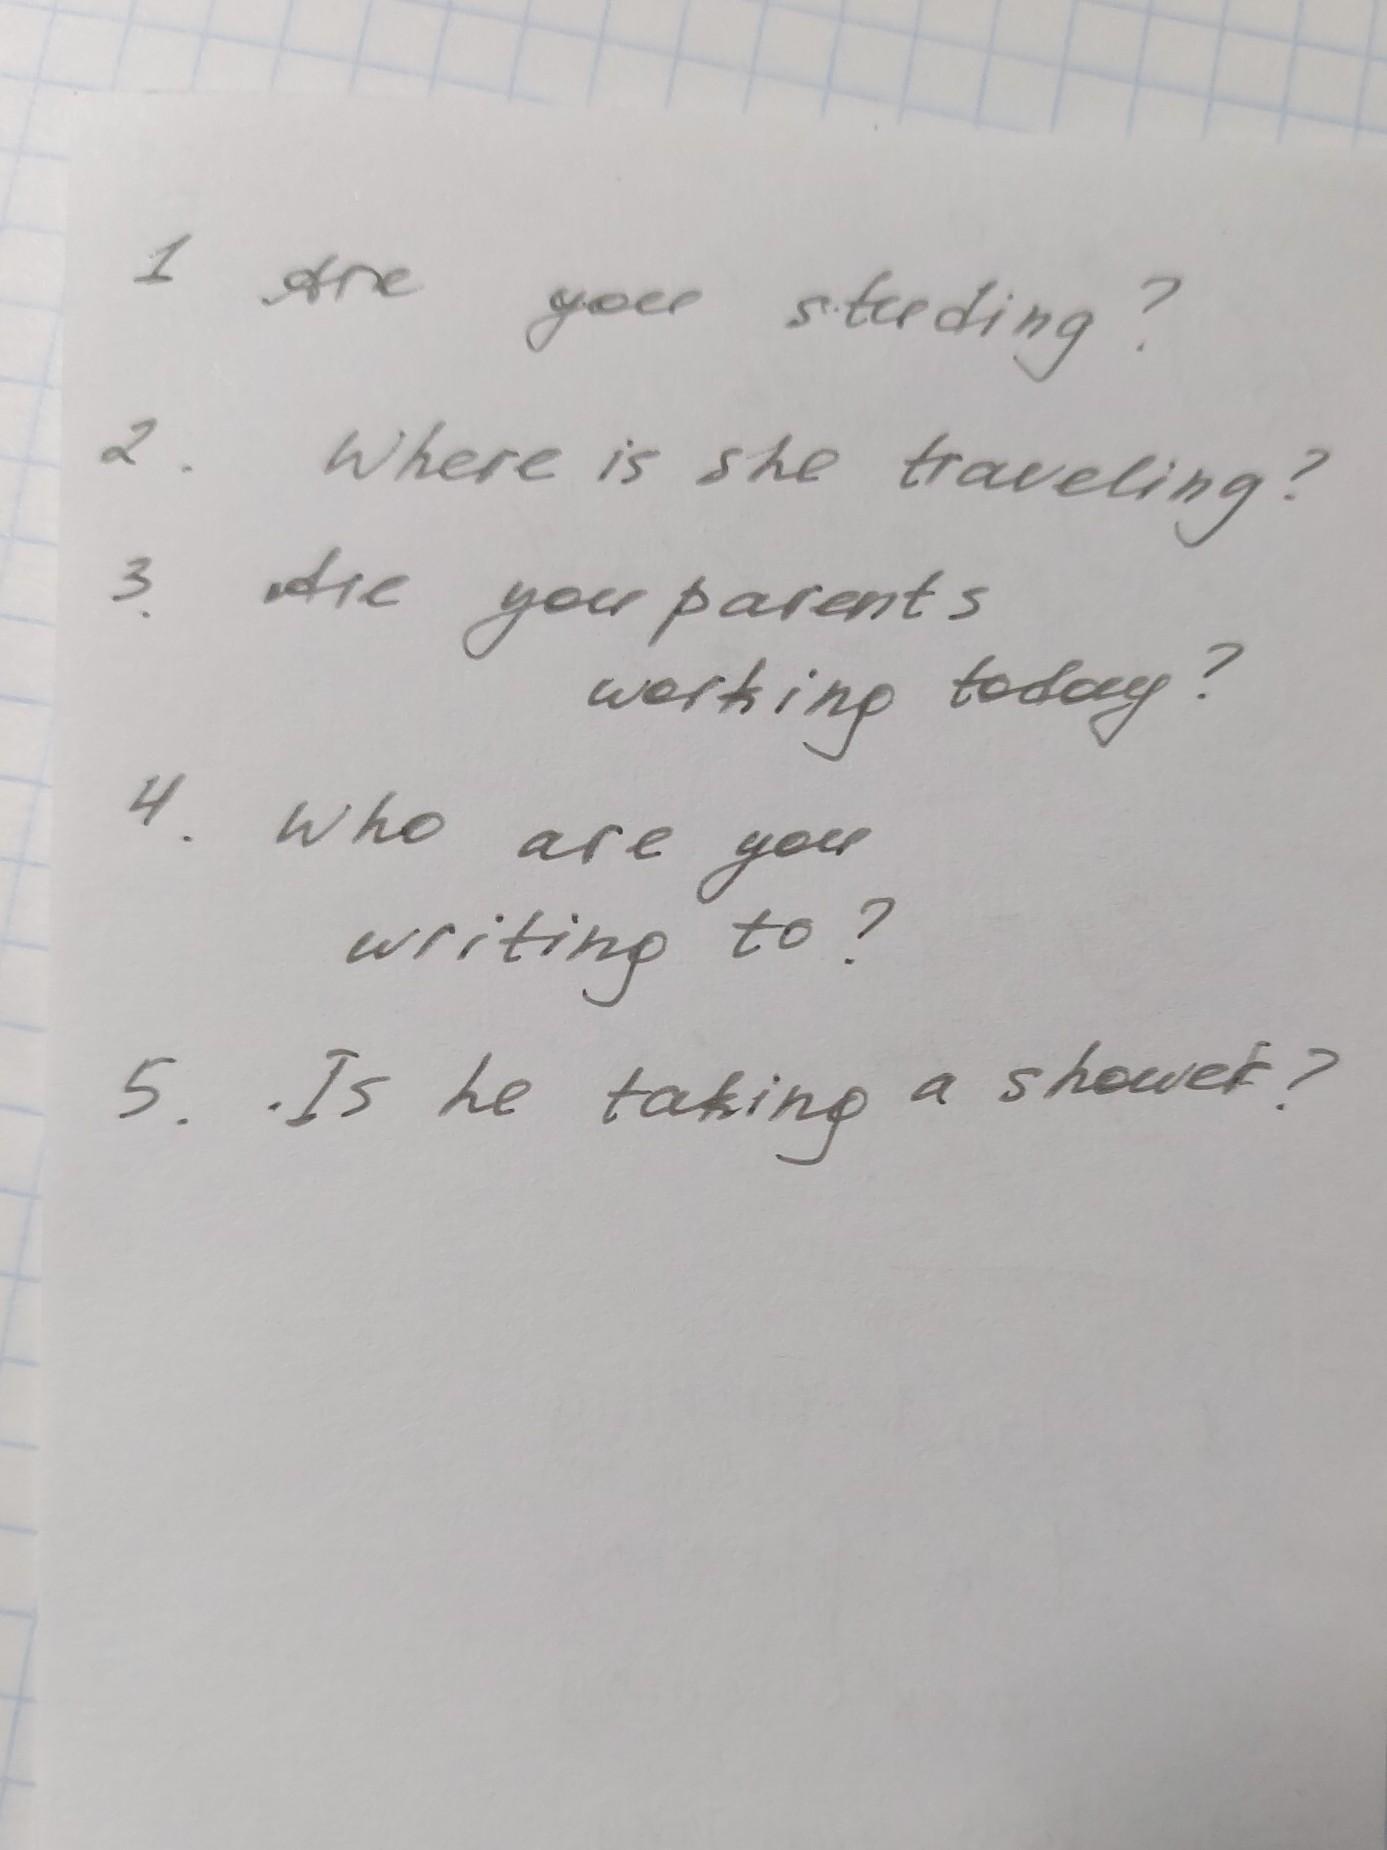 1 Are you studing?
2. Where is she traveling?
3. Are you parents
working today?
4. Who are you
writing to?
5. Is he taking a shower?